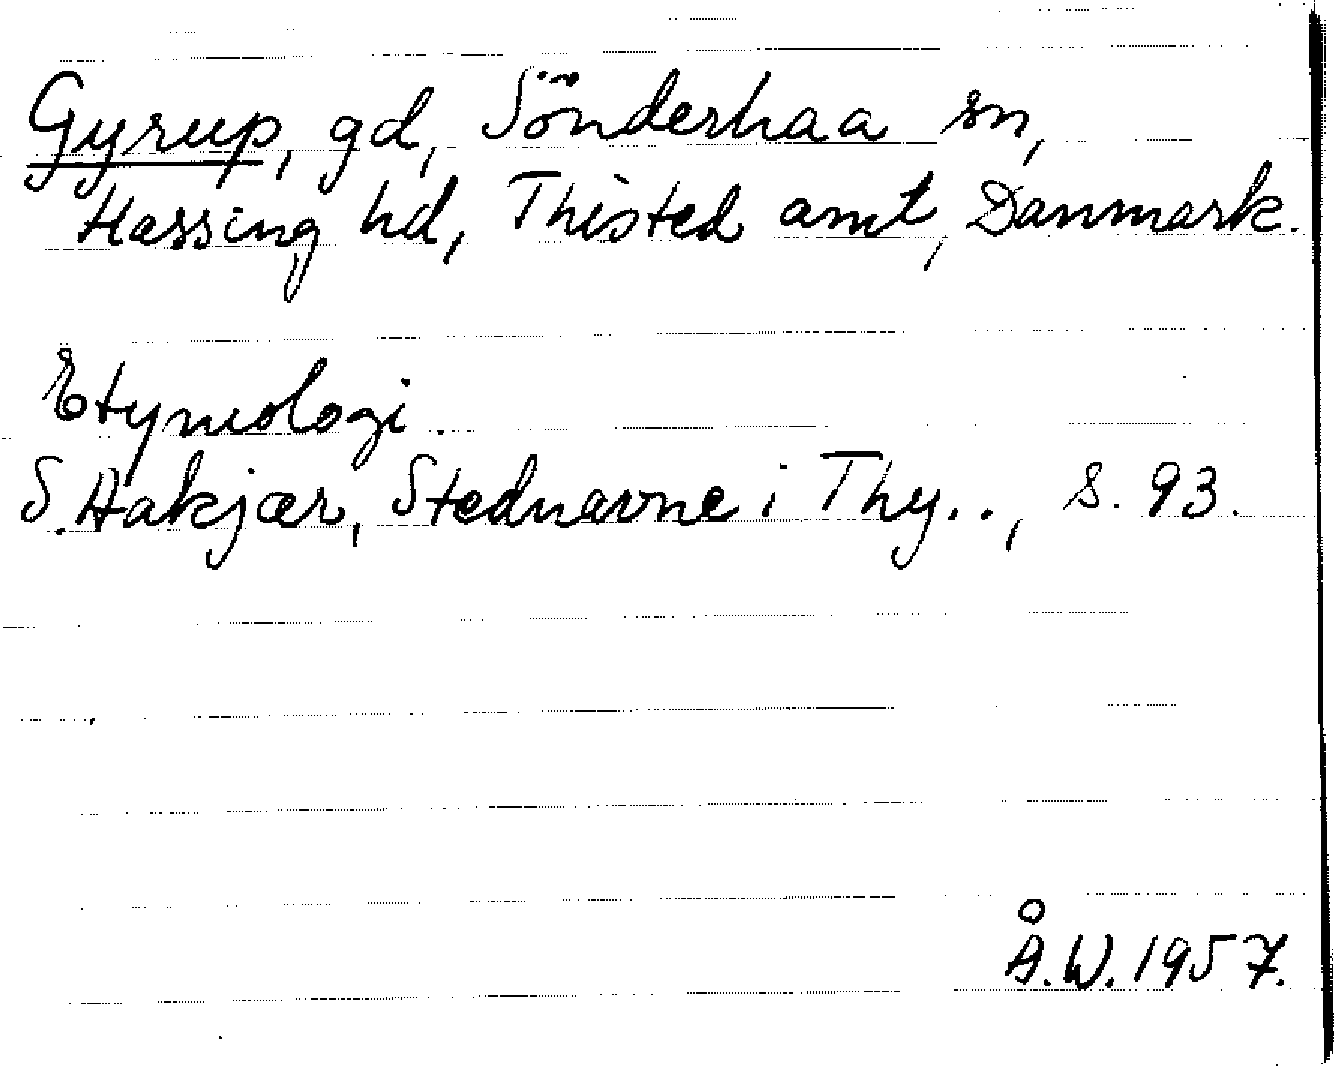 Gyrup, gd, Sönderhaa sn,
Hassing hd, Thisted amt, Danmark.
Etymologi.
S. Hakjær, Stednavne i Thy.., s. 93.
Å.W. 1957.